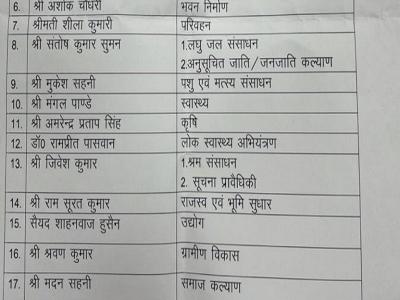 6. श्री अशोक चौधरी भवन निर्माण
7. श्रीमती शीला कुमारी परिवहन
8. श्री संतोष कुमार सुमन 1.लघु जल संसाधन
2.अनुसूचित जाति/जनजाति कल्याण
9. श्री मुकेश सहनी पशु एवं मत्स्य संसाधन
10. श्री मंगल पाण्डे स्वास्थ्य
11. श्री अमरेन्द्र प्रताप सिंह कृषि
12. डॉ0 रामप्रीत पासवान लोक स्वास्थ्य अभियंत्रण
13. श्री जिवेश कुमार 1.श्रम संसाधन
2. सूचना प्रावैधिकी
14. श्री राम सूरत कुमार राजस्व एवं भूमि सुधार
15. सैयद शाहनवाज हुसैन उद्योग
16. श्री श्रवण कुमार ग्रामीण विकास
17. श्री मदन सहनी समाज कल्याण